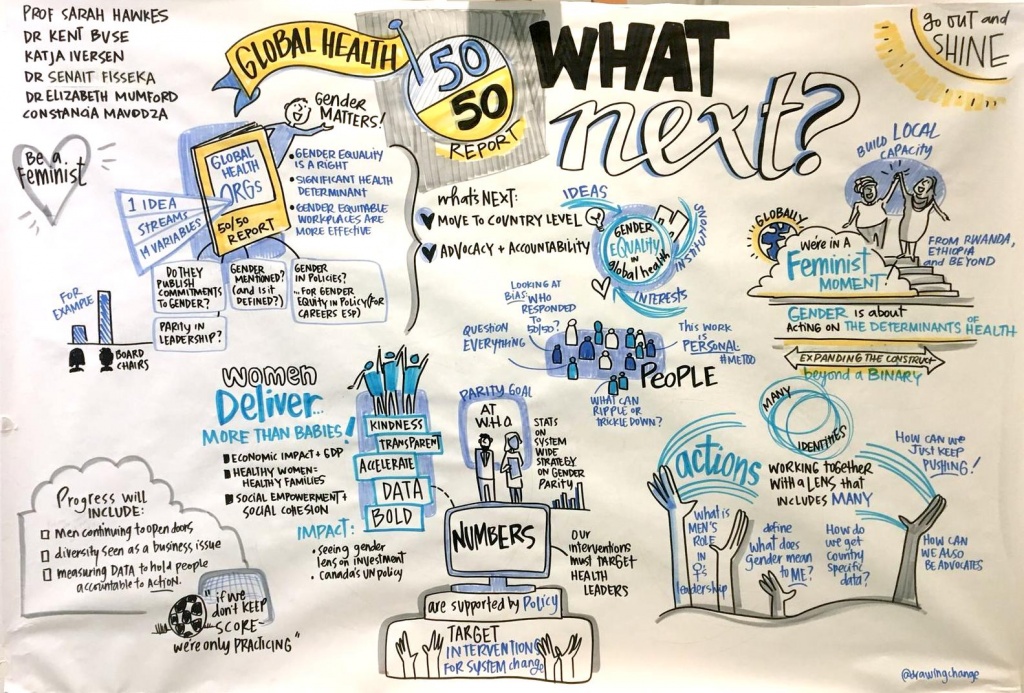 PROF SARAH HAWKES
DR KENT BUSE
KATJA IVERSEN
DR SENAIT FISSEKA
DR ELIZABETH MUMFORD
CONSTANCIA MAVODZA
Be a
Feminist
GLOBAL HEALTH
50
50
REPORT
WHAT
next?
go OUT and
SHINE
Gender
MATTERS!
GLOBAL
HEALTH
ORGs
50/50
REPORT
1 IDEA
STREAMS
14 VARIABLES
• GENDER EQUALITY
IS A RIGHT
• SIGNIFICANT HEALTH
DETERMINANT
• GENDER EQUITABLE
WORKPLACES ARE
MORE EFFECTIVE
DO THEY
PUBLISH
COMMITMENTS
TO GENDER?
GENDER
MENTIONED?
(and is it
DEFINED?)
GENDER
IN POLICIES?
...FOR GENDER
EQUITY IN POLICY (FOR
CAREERS ESP)
PARITY IN
LEADERSHIP?
FOR
EXAMPLE
BOARD
CHAIRS
what's NEXT:
MOVE TO COUNTRY LEVEL
ADVOCACY + ACCOUNTABILITY
IDEAS
GENDER
EQUALITY
IN
global health
INSTITUTIONS
INTERESTS
BUILD LOCAL
CAPACITY
GLOBALLY
We're IN A
Feminist
MOMENT!
FROM RWANDA,
ETHIOPIA
and BEYOND
GENDER is about
ACTING ON THE DETERMINANTS OF HEALTH
EXPANDING THE CONSTRUCT
beyond a BINARY
LOOKING AT
BIAS: WHO
RESPONDED
TO
50/50?
QUESTION
EVERYTHING
THIS WORK
IS
PERSONAL
#METOO
PEOPLE
WHAT CAN
RIPPLE OR
TRICKLE DOWN?
WOMEN
Deliver...
MORE THAN BABIES!
ECONOMIC IMPACT + GDP
HEALTHY WOMEN =
HEALTHY FAMILIES
SOCIAL EMPOWERMENT +
SOCIAL COHESION
KINDNESS
TRANSPARENT
ACCELERATE
DATA
BOLD
IMPACT:
• seeing gender
lens on investment
• Canada's UN policy
PARITY GOAL
AT
WHA
STATS
ON
SYSTEM
WIDE
STRATEGY
ON GENDER
PARITY
NUMBERS
are supported by Policy
TARGET
INTERVENTIONS
FOR SYSTEM change
OUR
interventions
must TARGET
HEALTH
LEADERS
MANY
IDENTITIES
actions
WORKING TOGETHER
WITH A LENS THAT
INCLUDES MANY
HOW CAN WE
JUST KEEP
PUSHING!
WHAT IS
MEN'S
ROLE
IN
♀'s
leadership
define
WHAT DOES
gender mean
to ME?
HOW DO
we get
COUNTRY
SPECIFIC
data?
HOW CAN
WE ALSO
BE ADVOCATES
Progress will
INCLUDE:
Men continuing to open doors
diversity seen as a business issue
measuring DATA to hold people
accountable to Action.
"if we
don't KEEP
SCORE—
we're only PRACTICING"
@drawingchange